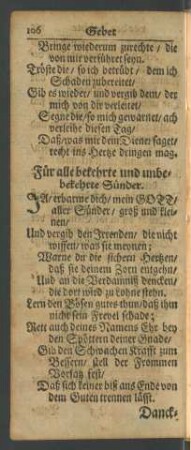 106 Gebet
Bringe wiederum zurechte / die
von mir verführet seyn.
Tröste die / so ich betrübt / dem ich
Schaden zubereitet /
Gib es wieder / und vergib dem / der
mich von dir verleitet /
Segne die / so mich gewarnet / ach
verleihe diesen Tag /
Daß / was mir dein Diener saget /
recht ins Hertze dringen mag.
Für alle bekehrte und unbe-
bekehrte Sünder.
JA / erbarme dich / mein GOTT /
aller Sünder / groß und klei-
nen /
Und vergib den Irrenden / die nicht
wissen / was sie meynen ;
Warne du die sichern Hertzen /
daß sie deinem Zorn entgehn /
Und an die Verdamniß dencken /
die dort wird zu Lohne stehn.
Lern den Bösen gutes thun / daß ihm
nicht sein Frevel schade ;
Rett auch deines Namens Ehr bey
den Spöttern deiner Gnade /
Gib den Schwachen Krafft zum
Bessern / stell der Frommen
Vorsatz fest /
Daß sich keiner biß ans Ende von
dem Guten trennen läßt.
Danck-